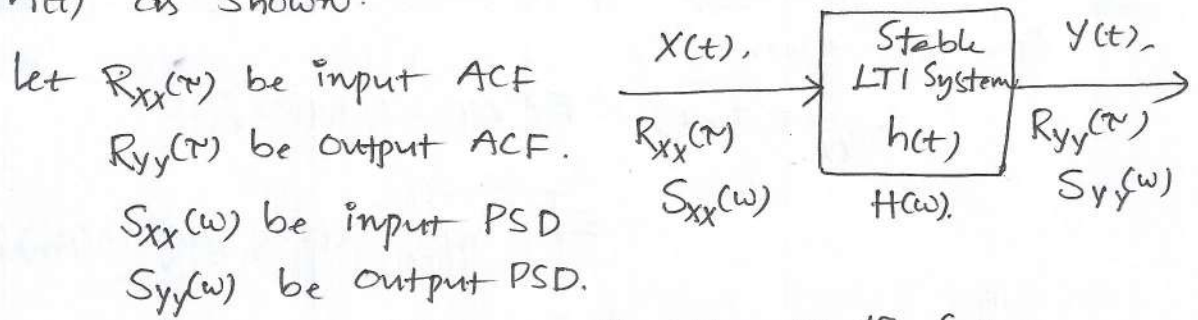 as shown.
Let Rxx(τ) be input ACF
Ryy(τ) be output ACF.
Sxx(ω) be input PSD
Syy(ω) be output PSD.
X(t),
Rxx(τ)
Sxx(ω)
Stable
LTI System
h(t)
H(ω).
Y(t),
Ryy(τ)
Syy(ω)